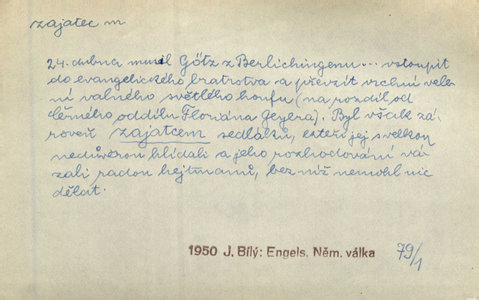 zajatec m
24. dubna musil Götz z Berlichingenu... vstoupit
do evangelického bratrstva a převzít vrchní vele-
ní valného světlého houfu (na rozdíl od
černého oddílu Floriána Geyera). Byl však zá-
roveň zajatcem sedláků, kteří jej s velkou
nedůvěrou hlídali a jeho rozhodování vá-
zali radou hejtmanů, bez níž nemohl nic
dělat.
1950 J. Bílý: Engels. Něm. válka 79/1